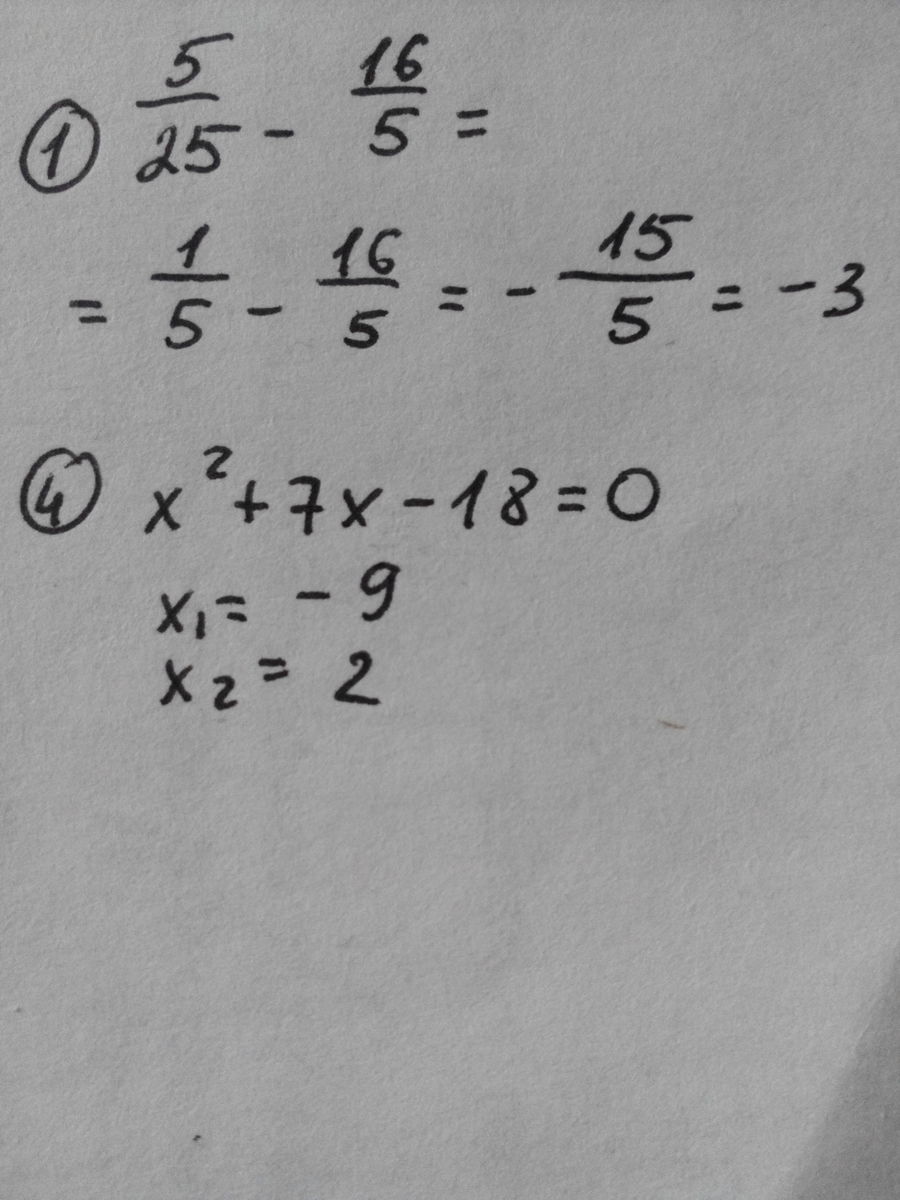 ① 5/25 - 16/5 =
= 1/5 - 16/5 = - 15/5 = -3
④ x² + 7x - 18 = 0
x₁ = - 9
x₂ = 2